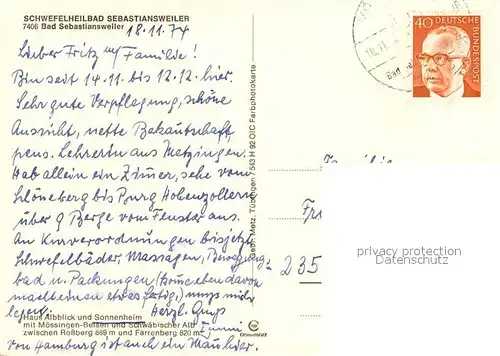 SCHWEFELHEILBAD SEBASTIANSWEILER
7406 Bad Sebastiansweiler
18.11.74
Lieber Fritz u/ Familie!
Bin seit 14.11. bis 12.12. hier.
Sehr gute Verpflegung, schöne
Aussicht, nette Bekanntschaft,
pens. Lehrerin aus Metzingen.
Hab allein ein Zimmer, sehe vom
bis Burg Hohenzollern
über 9 Berge vom Fenster aus.
An Kurverordnungen bis jetzt
Schwefelbäder, Massagen, Bewegungs-
bad u. Packungen (komme eben davon
etwas fertig) muss mich
legen. Herzl. Gruß
Haus Albblick und Sonnenheim
mit Mössingen-Belsen und Schwäbischer Alb
zwischen Roßberg 869 m und Farrenberg 820 m
von Hamburg ist auch ein hier.
Gebr. Metz, Tübingen / 543 H 92 OIC Farbphotokarte
40 DEUTSCHE
BUNDESPOST
18.11.
Bad
Fr
235
privacy protection
Datenschutz